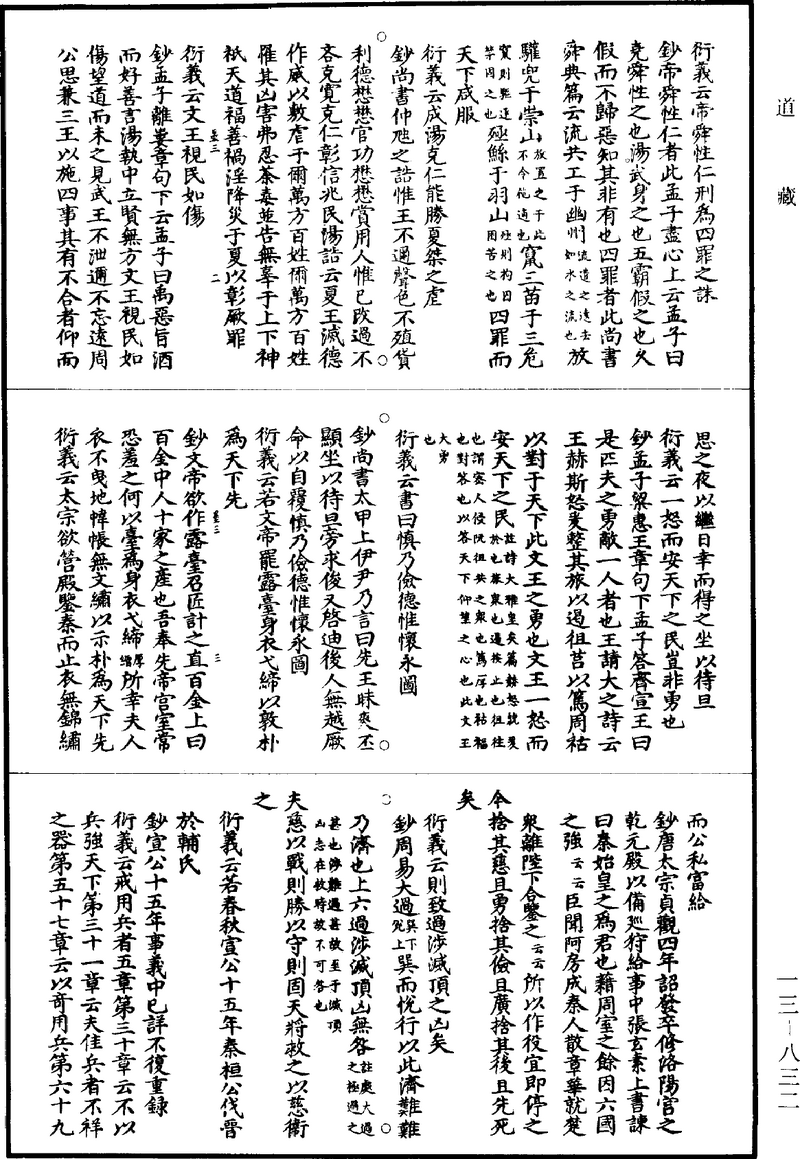 道藏
衍義云帝舜性仁刑爲四罪之誅
鈔帝舜性仁者此孟子盡心上云孟子曰
堯舜性之也湯武身之也五霸假之也久
假而不歸惡知其非有也四罪者此尚書
舜典篇云流共工于幽州流遣之遠去如水之流也放
驩兜于崇山放置之于此不令他適也竄三苗于三危
竄則驅逐禁固之也殛鯀于羽山殛則拘囚困苦之也四罪而
天下咸服
衍義云成湯克仁能勝夏桀之虐
鈔尚書仲虺之誥惟王不邇聲色不殖貨
利德懋懋官功懋懋賞用人惟已改過不
吝克寬克仁彰信兆民湯誥云夏王滅德
作威以敷虐于爾萬方百姓爾萬方百姓
罹其凶害弗忍荼毒並告無辜于上下神
祇天道福善禍淫降災于夏以彰厥罪
衍義云文王視民如傷
鈔孟子離婁章句下云孟子曰禹惡旨酒
而好善言湯執中立賢無方文王視民如
傷望道而未之見武王不泄邇不忘遠周
公思兼三王以施四事其有不合者仰而
思之夜以繼日幸而得之坐以待旦
衍義云一怒而安天下之民豈非勇也
鈔孟子梁惠王章句下孟子答齊宣王曰
是匹夫之勇敵一人者也王請大之詩云
王赫斯怒爰整其旅以遏徂莒以篤周祜
以對于天下此文王之勇也文王一怒而
安天下之民註詩大雅皇矣篇赫怒號爰於也旅衆也遏按止也徂往
也謂密人侵阮徂共之衆也篤厚也祜福也對答也以答天下仰望之心也此文王大勇
也
衍義云書曰慎乃儉德惟懷永圖
鈔尚書太甲上伊尹乃言曰先王昧爽丕
顯坐以待旦旁求俊乂啓迪後人無越厥
命以自覆慎乃儉德惟懷永圖
衍義云若文帝罷露臺身衣弋綈以敦朴
爲天下先
鈔文帝欲作露臺召匠計之直百金上曰
百金中人十家之產也吾奉先帝宮室常
恐羞之何以臺爲身衣弋綈厚繒所幸夫人
衣不曳地幃帳無文繡以示朴爲天下先
衍義云太宗欲營殿鑒秦而止衣無錦繡
而公私富給
鈔唐太宗貞觀四年詔發卒修洛陽宮之
乾元殿以備巡狩給事中張玄素上書諫
曰秦始皇之爲君也藉周室之餘因六國
之強云云臣聞阿房成秦人散章華就楚
衆離陛下合鑒之云云所以作役宜即停之
今捨其慈且勇捨其儉且廣捨其後且先死
矣
衍義云則致過涉滅頂之凶矣
鈔周易大過巽下兌上巽而悅行以此濟難難
乃濟也上六過涉滅頂凶無咎註處大過之極過之
甚也涉難過甚故至于滅頂凶志在救時故不可咎也
夫慈以戰則勝以守則固天將救之以慈衛
之
衍義云若春秋宣公十五年秦桓公伐晉
於輔氏
鈔宣公十五年事義中已詳不復重録
衍義云戒用兵者五章第三十章云不以
兵強天下第三十一章云夫佳兵者不祥
之器第五十七章云以奇用兵第六十九
一三－八三二